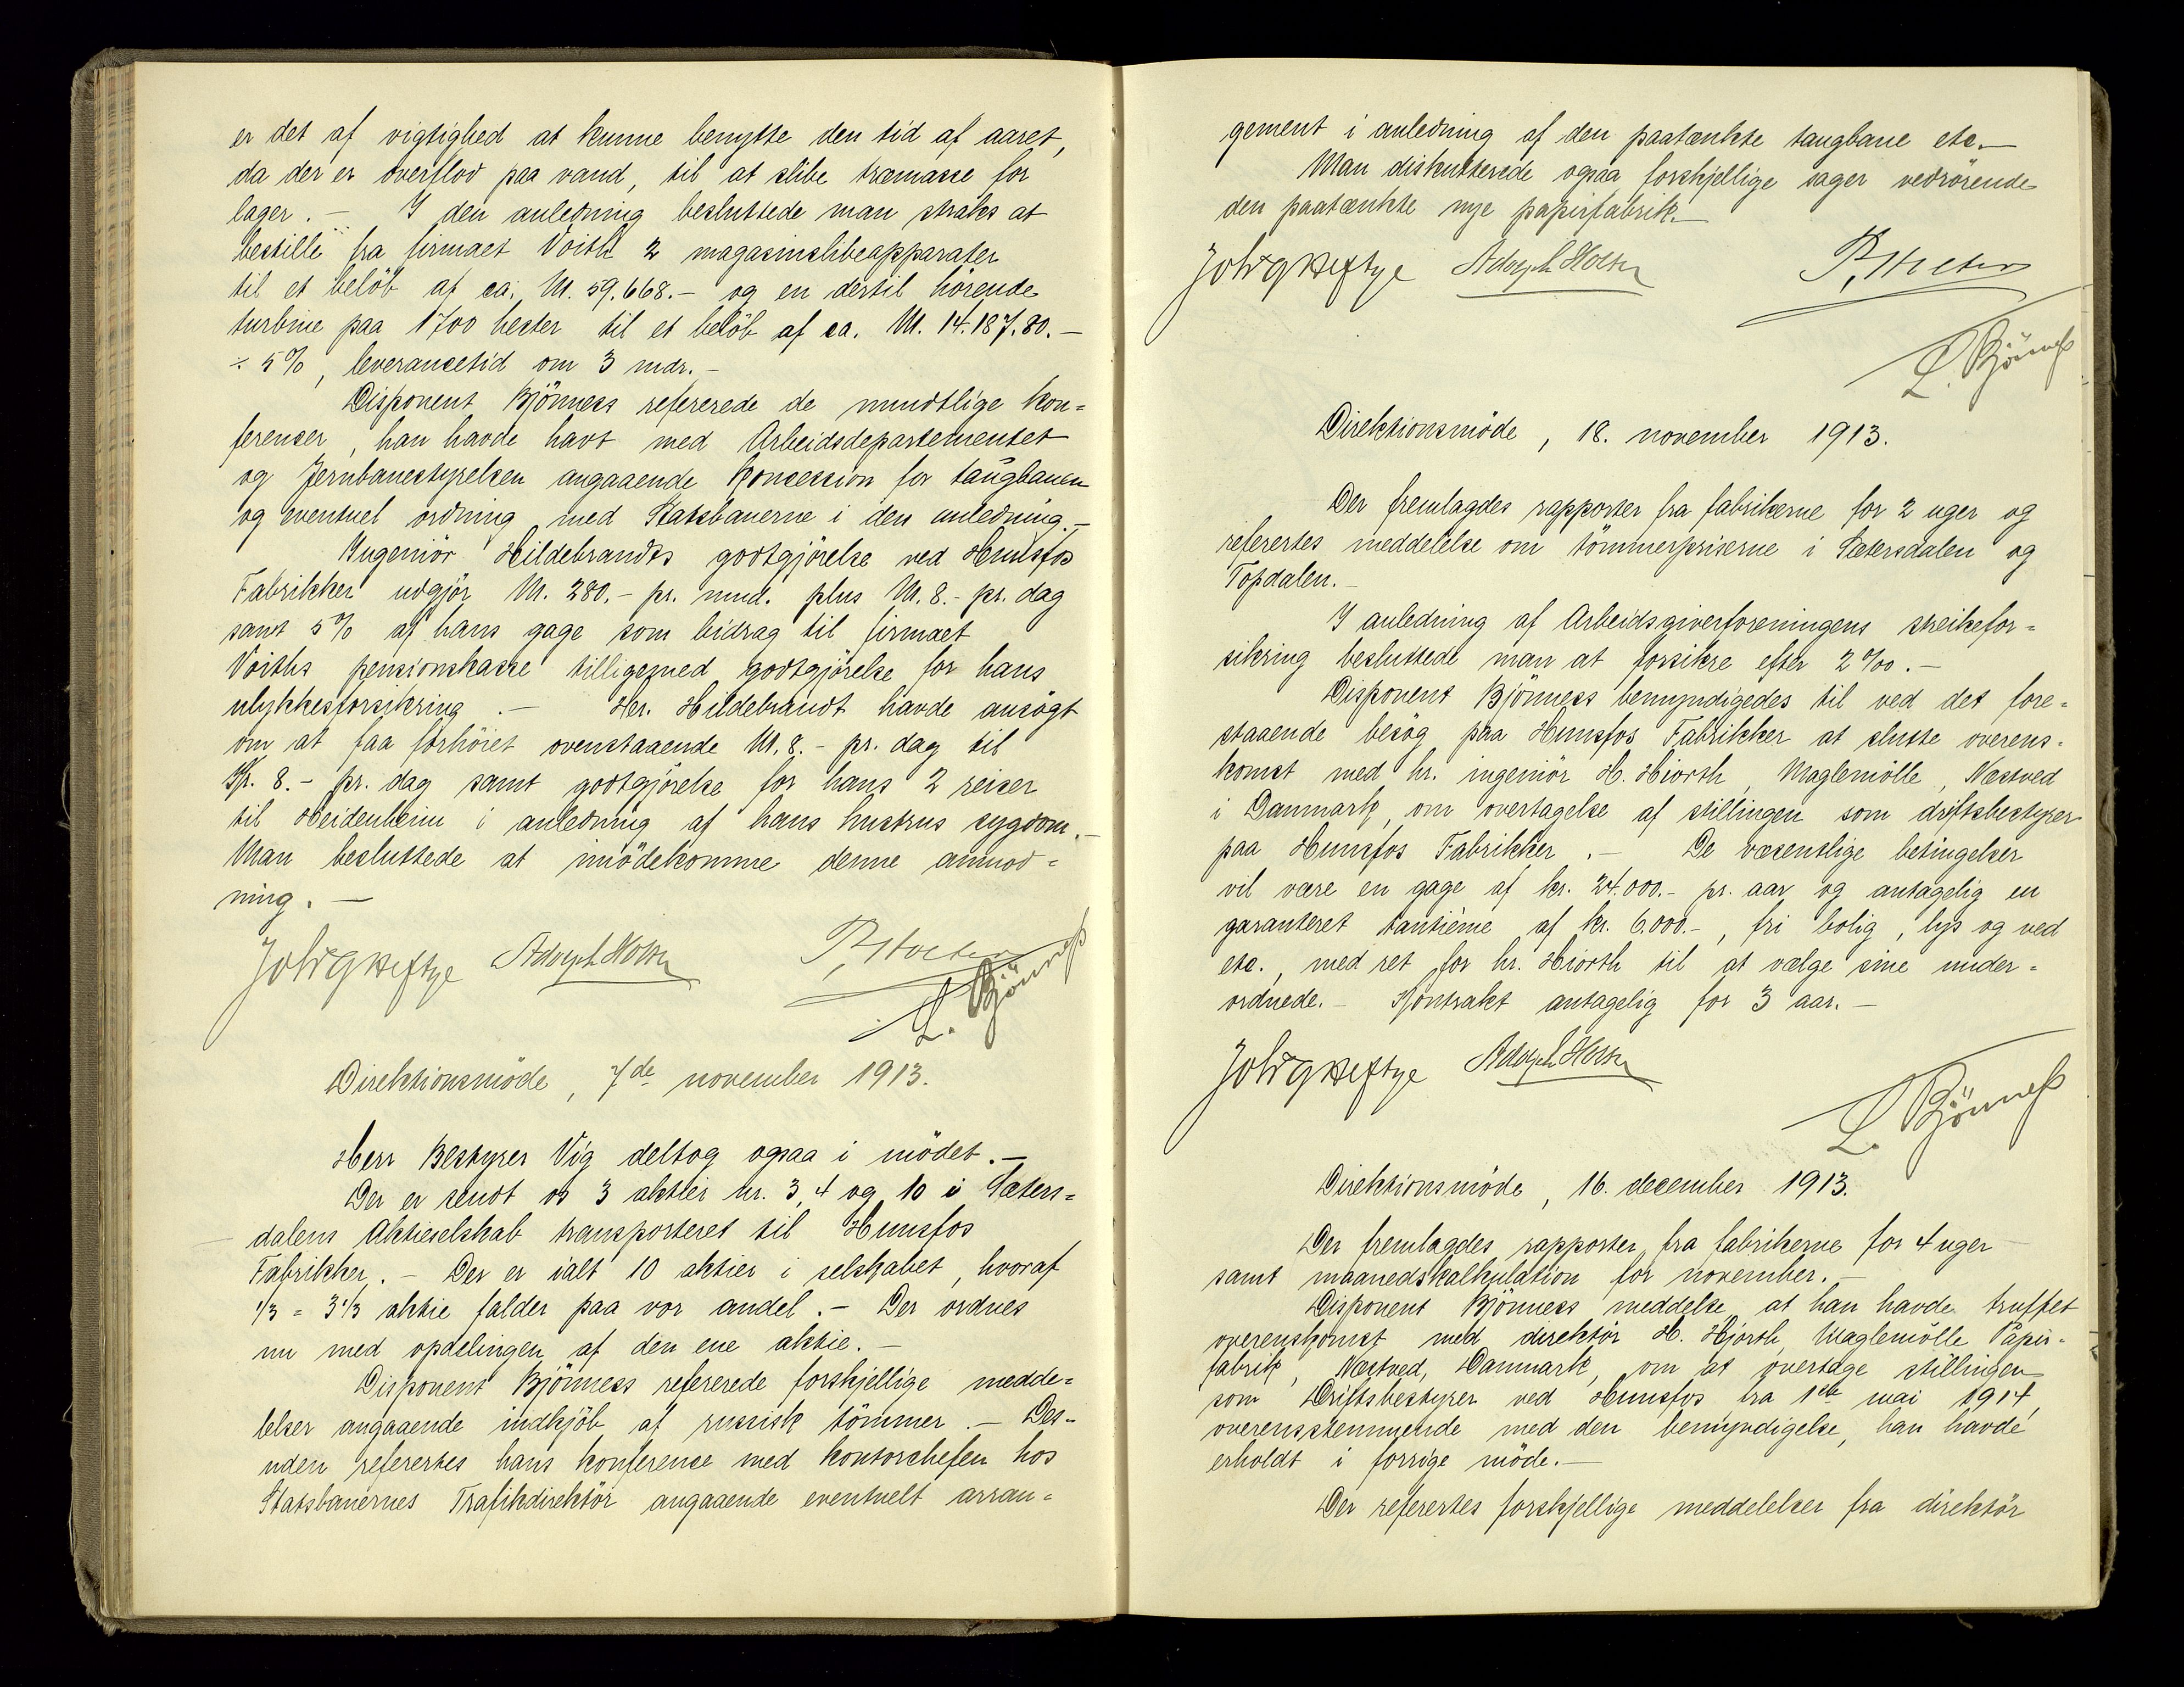 er det af vigtighed at kunne benytte den tid af aaret,
da der er overflod paa vand, til at slibe træmasse for
lager. – I den anledning besluttede man straks at
bestille fra firmaet Voith 2 magasinslibeapparater
til et belöb af ca. M. 59.668.– og en dertil hörende
turbine paa 1700 hester til et belöb af ca. M. 14.187.80.–
÷ 5%, leverancetid om 3 mdr. –
Disponent Bjönness refererede de mundtlige kon=
ferenser, han havde havt med Arbeidsdepartementet
og Jernbanestyrelsen angaaende Koncession for taugbanen
og eventuel ordning med Statsbanerne i den anledning. –
Ingeniör Hildebrandts godtgjörelse ved Hunsfos
Fabrikker udgjör M. 280.– pr. mnd. plus M. 8.– pr. dag
samt 5% af hans gage som bidrag til firmaet
Voiths pensionskasse tilligemed godtgjörelse for hans
ulykkesforsikring. – Hr. Hildebrandt havde ansögt
om at faa forhöiet ovenstaaende M. 8.– pr. dag til
Kr. 8.– pr. dag samt godtgjörelse for hans 2 reiser
til Heidenheim i anledning af hans hustrus sygdom. –
Man besluttede at imödekomme denne anmod=
ning. –
Joh G Heftye Adolph Holth
L. Bjönness
Direktionsmöde, 7de november 1913.
Herr Bestyrer Vig deltog ogsaa i mödet. –
Der er sendt os 3 aktier nr. 3, 4 og 10 i Sæters=
dalens Aktieselskab transporteret til Hunsfos
Fabrikker. – Der er ialt 10 aktier i selskabet, hvoraf
1/3 = 3 1/3 aktie falder paa vor andel. – Der ordnes
nu med opdelingen af den ene aktie. –
Disponent Bjönness refererede forskjellige medde=
lelser angaaende indkjöb af russisk tömmer. – Des=
uden referertes hans konference med kontorchefen hos
Statsbanernes Trafikdirektör angaaende eventuelt arran=
gement i anledning af den paatænkte taugbane etc. –
Man diskutterede ogsaa forskjellige sager vedrörende
den paatænkte nye papirfabrik. –
Joh G Heftye Adolph Holth
L. Bjönness
Direktionsmöde, 18. november 1913.
Der fremlagdes rapporter fra fabrikerne for 2 uger og
refertes meddelelse om tömmerpriserne i Sætersdalen og
Topdalen. –
I anledning af Arbeidsgiverforeningens streikefor=
sikring besluttede man at forsikre efter 2 ‰. –
Disponent Bjönness bemyndigedes til ved det fore=
staaende besög paa Hunsfos Fabrikker at slutte overens=
komst med hr. ingeniör H. Hiorth, Maglemölle, Næstved
i Danmark, om overtagelse af stillingen som driftsbestyrer
paa Hunsfos Fabrikker. – De væsentlige betingelser
vil være en gage af kr. 24.000.– pr. aar og antagelig en
garanteret tantième af kr. 6.000.–, fri bolig, lys og ved
etc., med ret for hr. Hiorth til at vælge sine under=
ordnede. – Kontrakt antagelig for 3 aar. –
Joh G Heftye Adolph Holth
L. Bjönness
Direktionsmöde, 16. december 1913.
Der fremlagdes rapporter fra fabrikerne for 4 uger
samt maanedskalkulation for november. –
Disponent Bjönness meddelte at han havde truffet
overenskomst med direktör H. Hjorth, Maglemölle Papir=
fabrik, Næstved, Danmark, om at overtage stillingen
som Driftsbestyrer ved Hunsfos fra 1ste mai 1914,
overensstemmende med den bemyndigelse, han havde
erholdt i forrige möde. –
Der refertes forskjellige meddelelser fra direktör